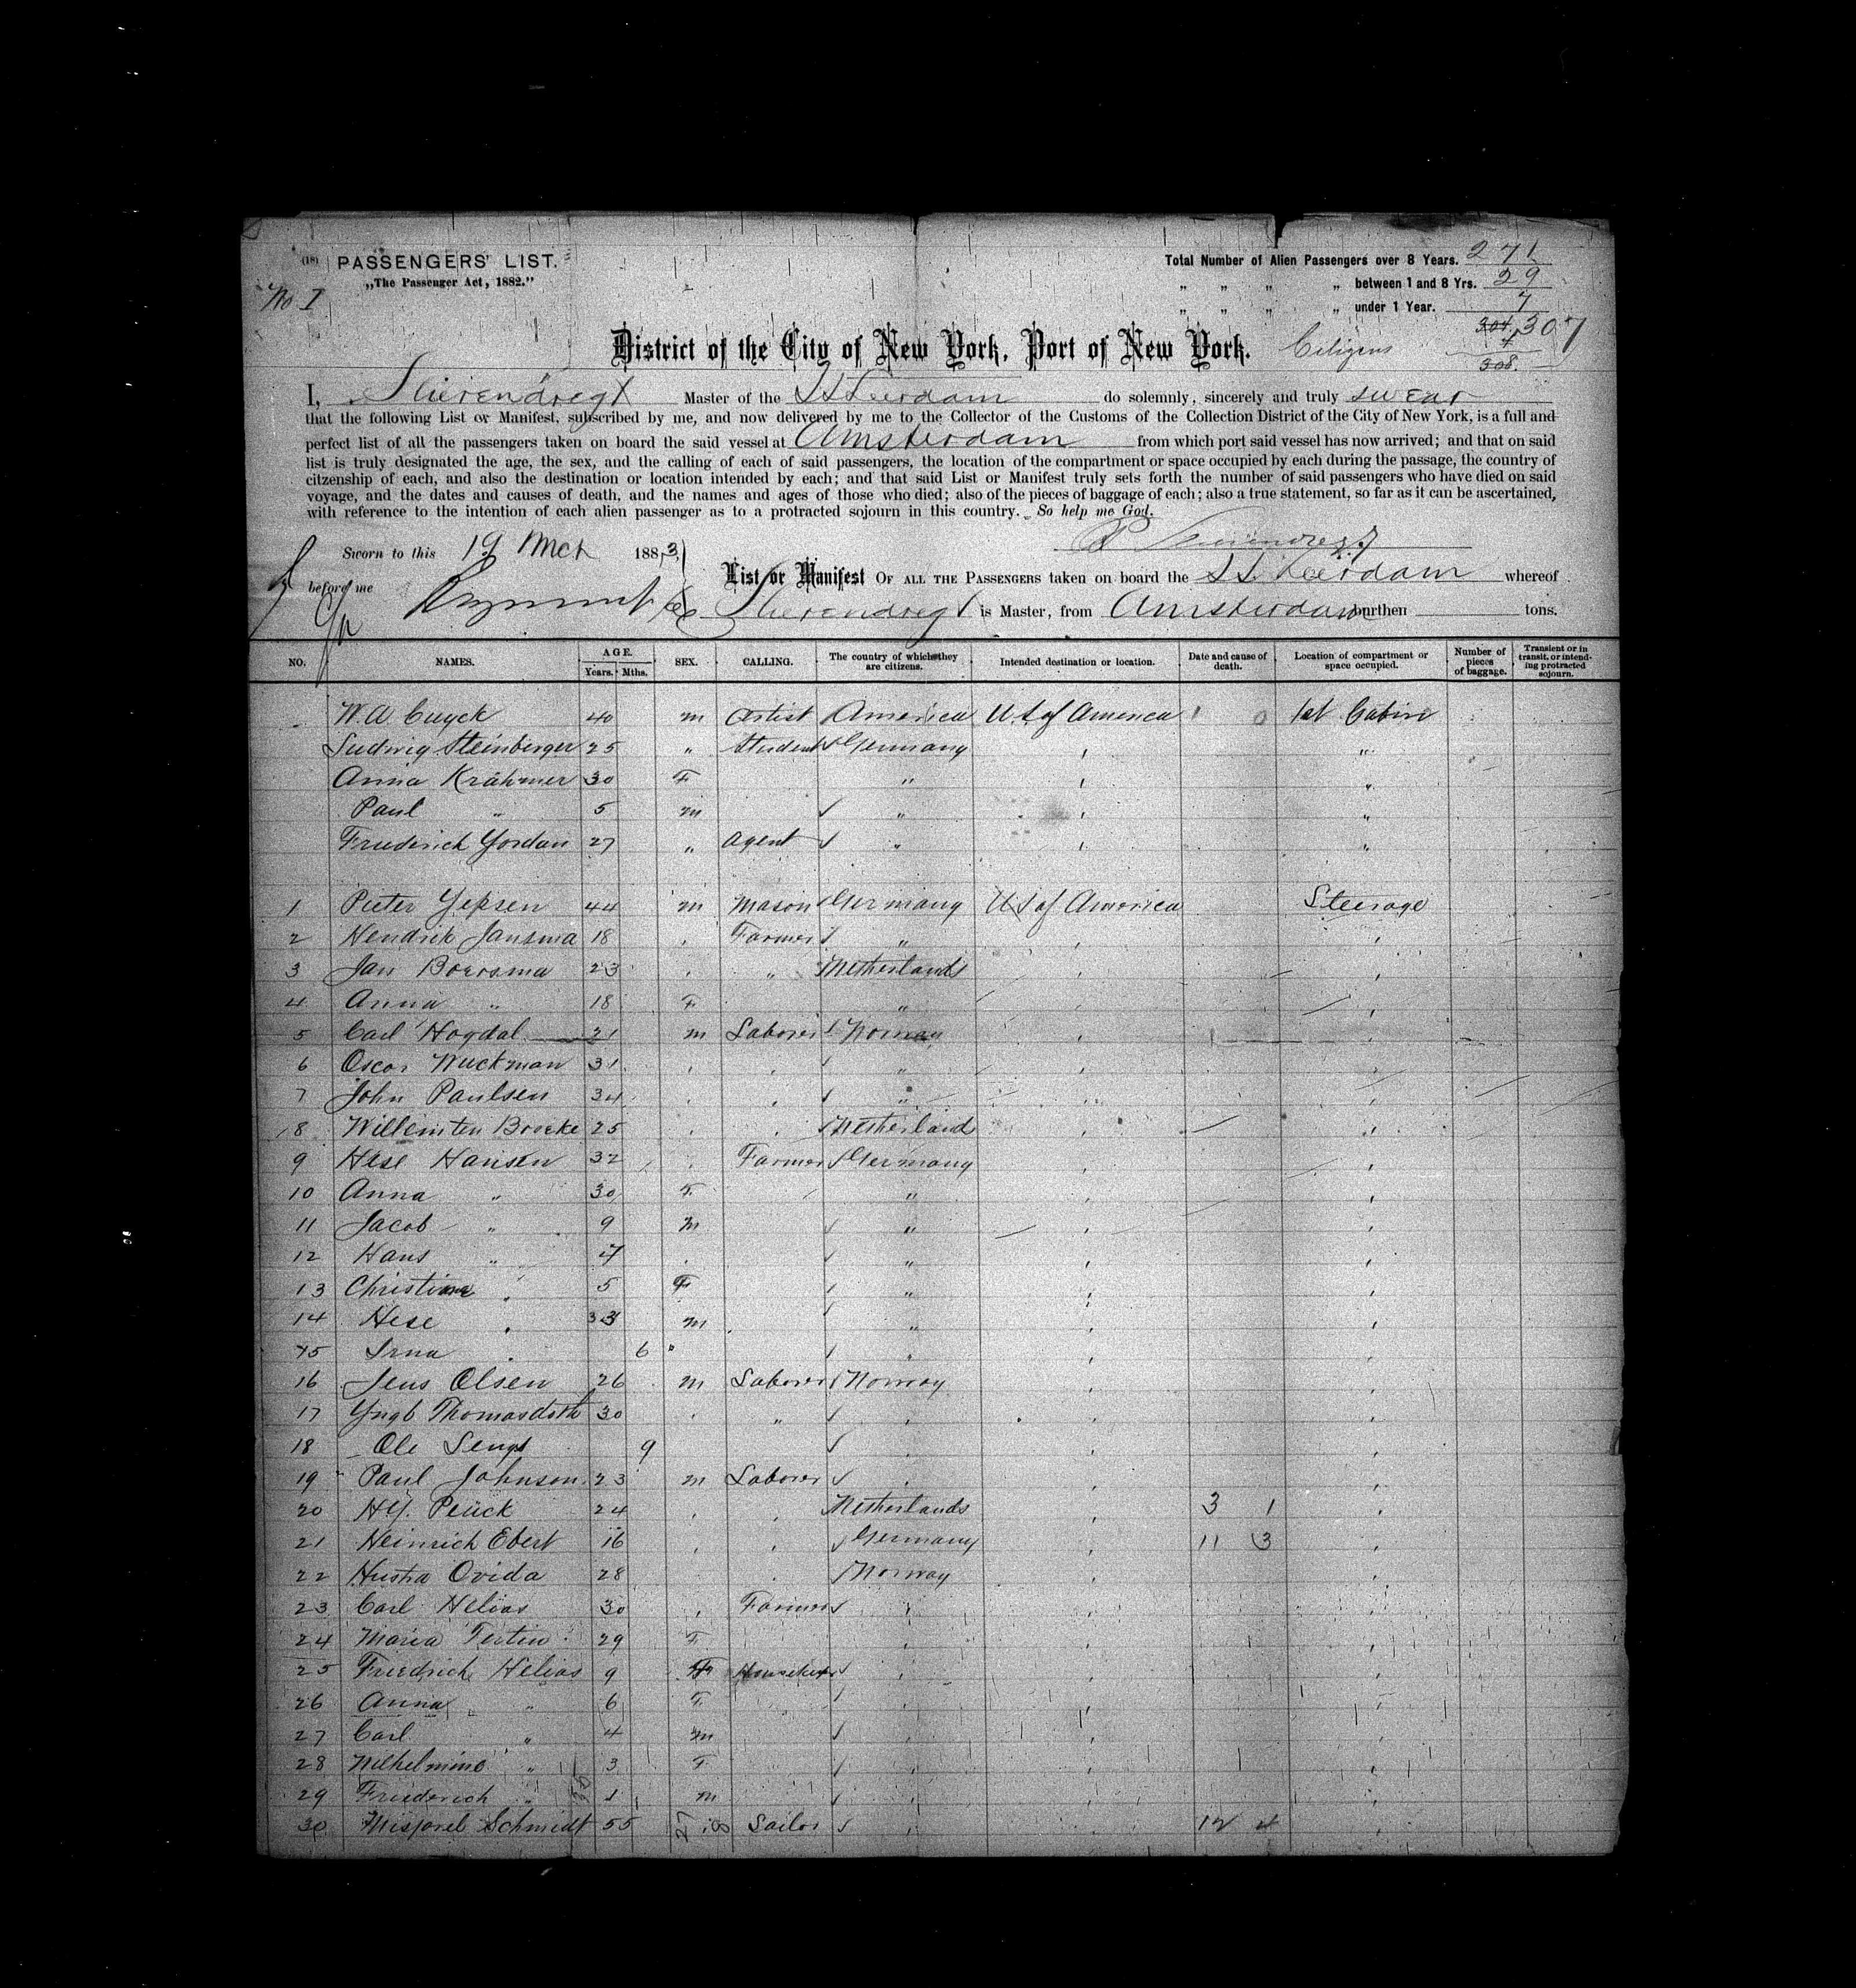 (18) PASSENGERS' LIST.
„The Passenger Act, 1882."
No I
Total Number of Alien Passengers over 8 Years. 271
„ „ „ „ between 1 and 8 Yrs. 29
„ „ „ „ under 1 Year. 7
304 307
4
308.
Citizens
District of the City of New York, Port of New York.
I, Stierendregt Master of the SS Leerdam do solemnly, sincerely and truly swear
that the following List or Manifest, subscribed by me, and now delivered by me to the Collector of the Customs of the Collection District of the City of New York, is a full and
perfect list of all the passengers taken on board the said vessel at Amsterdam from which port said vessel has now arrived; and that on said
list is truly designated the age, the sex, and the calling of each of said passengers, the location of the compartment or space occupied by each during the passage, the country of
citzenship of each, and also the destination or location intended by each; and that said List or Manifest truly sets forth the number of said passengers who have died on said
voyage, and the dates and causes of death, and the names and ages of those who died; also of the pieces of baggage of each; also a true statement, so far as it can be ascertained,
with reference to the intention of each alien passenger as to a protracted sojourn in this country. So help me God.
Sworn to this 19 Mch 1883
before me
List or Manifest OF ALL THE PASSENGERS taken on board the SS Leerdam whereof
Stierendregt is Master, from Amsterdam burthen tons.
NO. NAMES. AGE. Years. Mths. SEX. CALLING. The country of which they are citizens. Intended destination or location. Date and cause of death. Location of compartment or space occupied. Number of pieces of baggage. Transient or in transit, or intending protracted sojourn.
W. A. Cuyck 40 m Artist America U S of America 1st Cabin
Ludwig Steinberger 25 „ Student Germany „ „
Anna Krähmer 30 F „ „ „
Paul „ 5 m „ „ „
Friederich Yordan 27 „ Agent „ „ „
1 Pieter Yepsen 44 m Mason Germany U S of America Steerage
2 Hendrik Jansma 18 „ Farmer „ „ „
3 Jan Boersma 23 „ „ Netherlands „ „
4 Anna „ 18 F „ „ „
5 Carl Hogdal 21 m Laborer Norway „ „
6 Oscar Wuckman 31 „ „ „ „ „
7 John Paulsen 34 „ „ „ „ „
8 Willem ten Broeke 25 „ „ Netherland „ „
9 Hese Hansen 32 „ Farmer Germany „ „
10 Anna „ 30 F „ „ „
11 Jacob „ 9 m „ „ „
12 Hans „ 7 „ „ „ „
13 Christine „ 5 F „ „ „
14 Hese „ 3 m „ „ „
15 Irna „ 6 „ „ „ „
16 Jens Olsen 26 m Laborer Norway „ „
17 Yngb Thomasdoth 30 „ „ „ „ „
18 Ole 9 „ „ „
19 Paul Johnson 23 m Laborer „ „ „
20 HY. Peück 24 „ „ Netherlands „ 3 1 „
21 Heinrich Ebert 16 „ „ Germany „ 11 3 „
22 Hustra Ovida 28 „ Norway „ „
23 Carl Helias 30 „ Farmer „ „ „
24 Maria Tertin 29 F „ „ „
25 Friedrich Helias 9 „ „ „
26 Anna „ 6 F „ „ „
27 Carl „ 4 m „ „ „
28 Wilhelmine „ 3 F „ „ „
29 Friederich „ 1 m „ „ „
30 Schmidt 55 Sailor „ „ 12 4 „